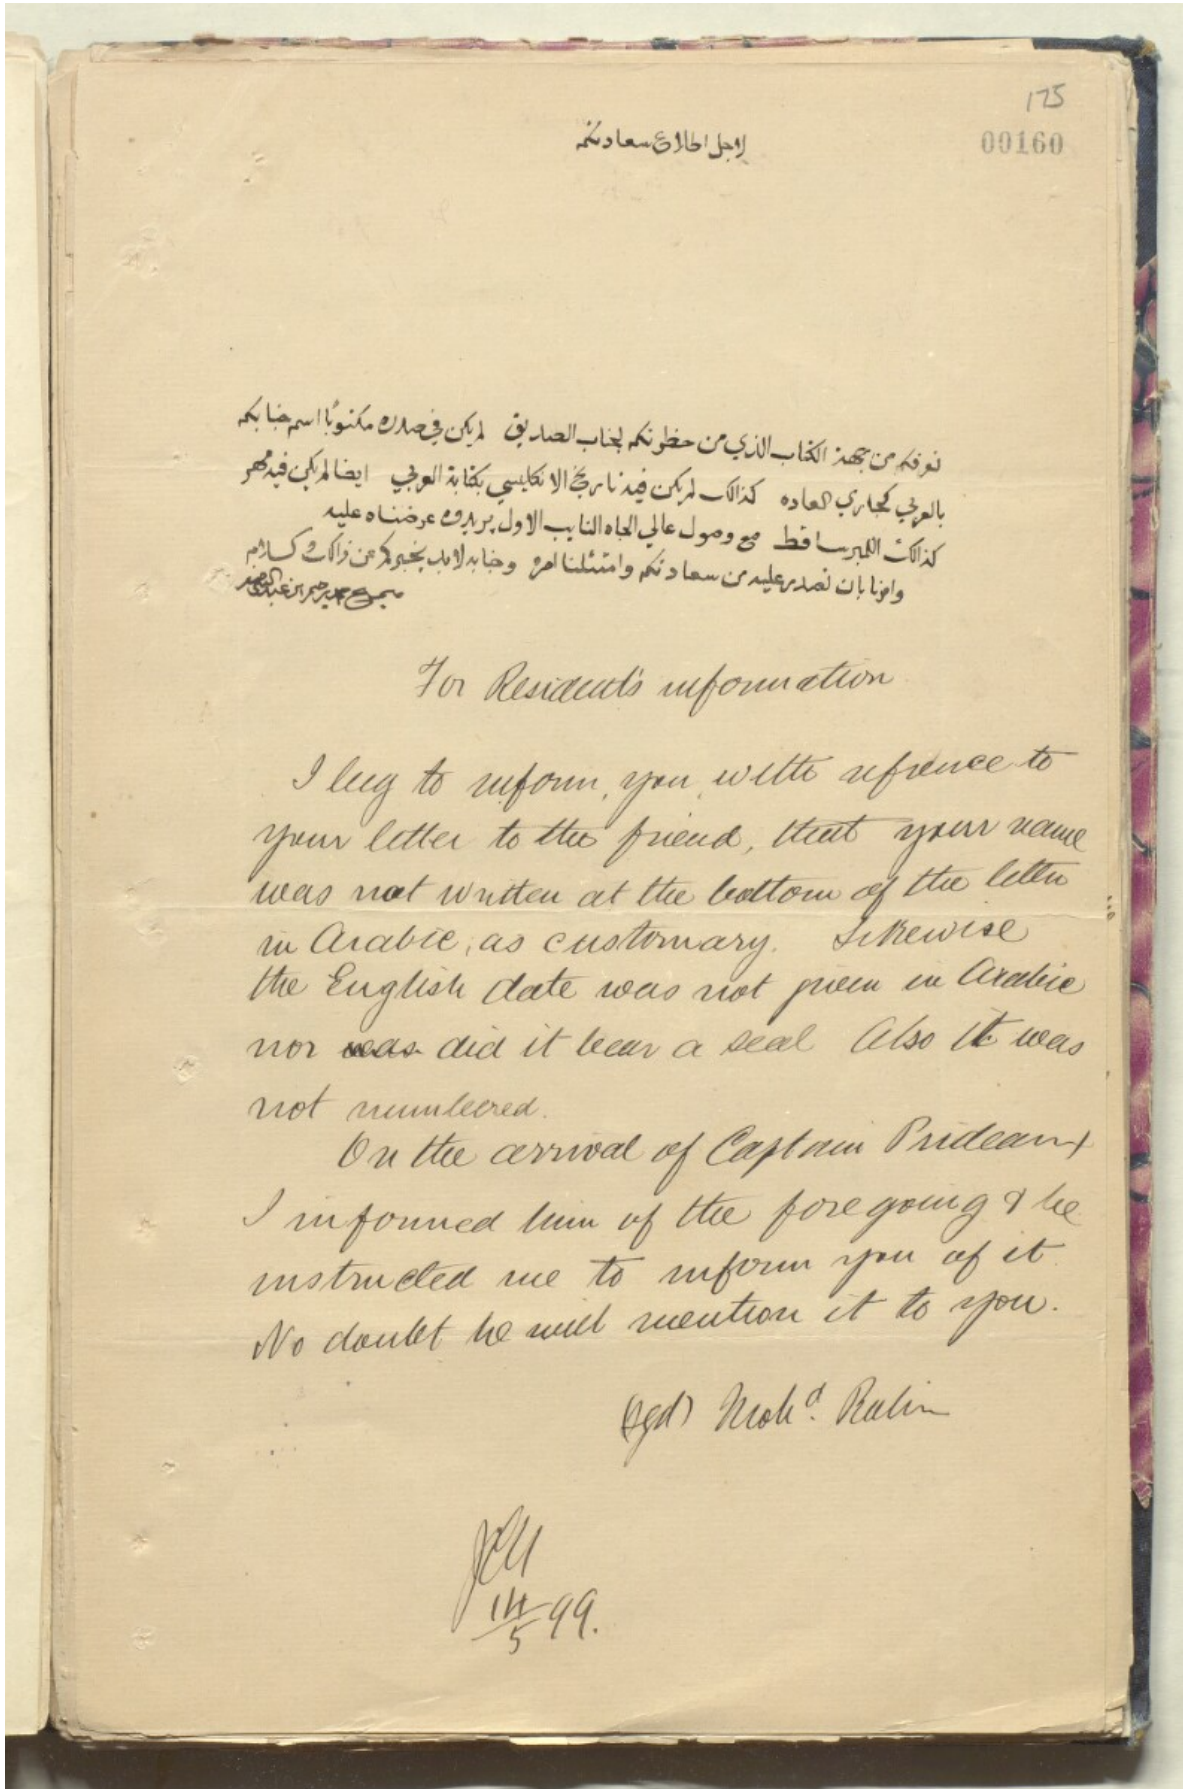 175
00160
لاجل اطلاع سعادتكم
نعرفكم من جهة الكتاب الذي من حظرتكم لجناب الصديق لم يكن في صدره مكتوبًا اسم جنابكم
بالعربي كجاري العاده كذالك لم يكن فيه تاريخ الانكليسي بكتابة العربي ايضا لم يكن فيه مهر
كذالك اللمبر ساقط مع وصول عالي الجاه النايب الاول پريدوه عرضناه عليه
وامرنا بان نصدر عليه من سعادتكم وامتثلنا امره وجنابه لابد يخبركم عن ذالك والسلام
For Resident's information
I beg to inform, you, with refrence to
your letter to the friend, that your name
was not written at the bottom of the letter
in Arabic, as customary. Likewise
the English date was not given in Arabic
nor was did it bear a seal Also it was
not numbered.
On the arrival of Captain Prideaux
I informed him of the foregoing & he
instructed me to inform you of it
No doubt he will mention it to you.
(sgd) Moh<sup>d</sup>. Rahim
14/5 99.